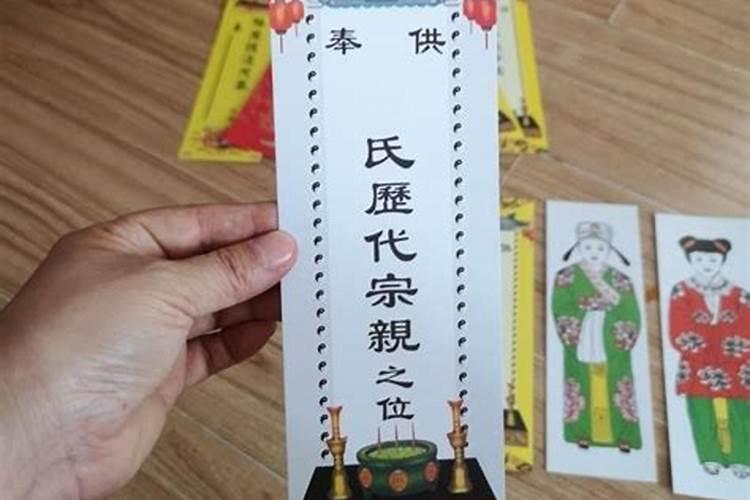 奉 供
氏歷代宗親之位